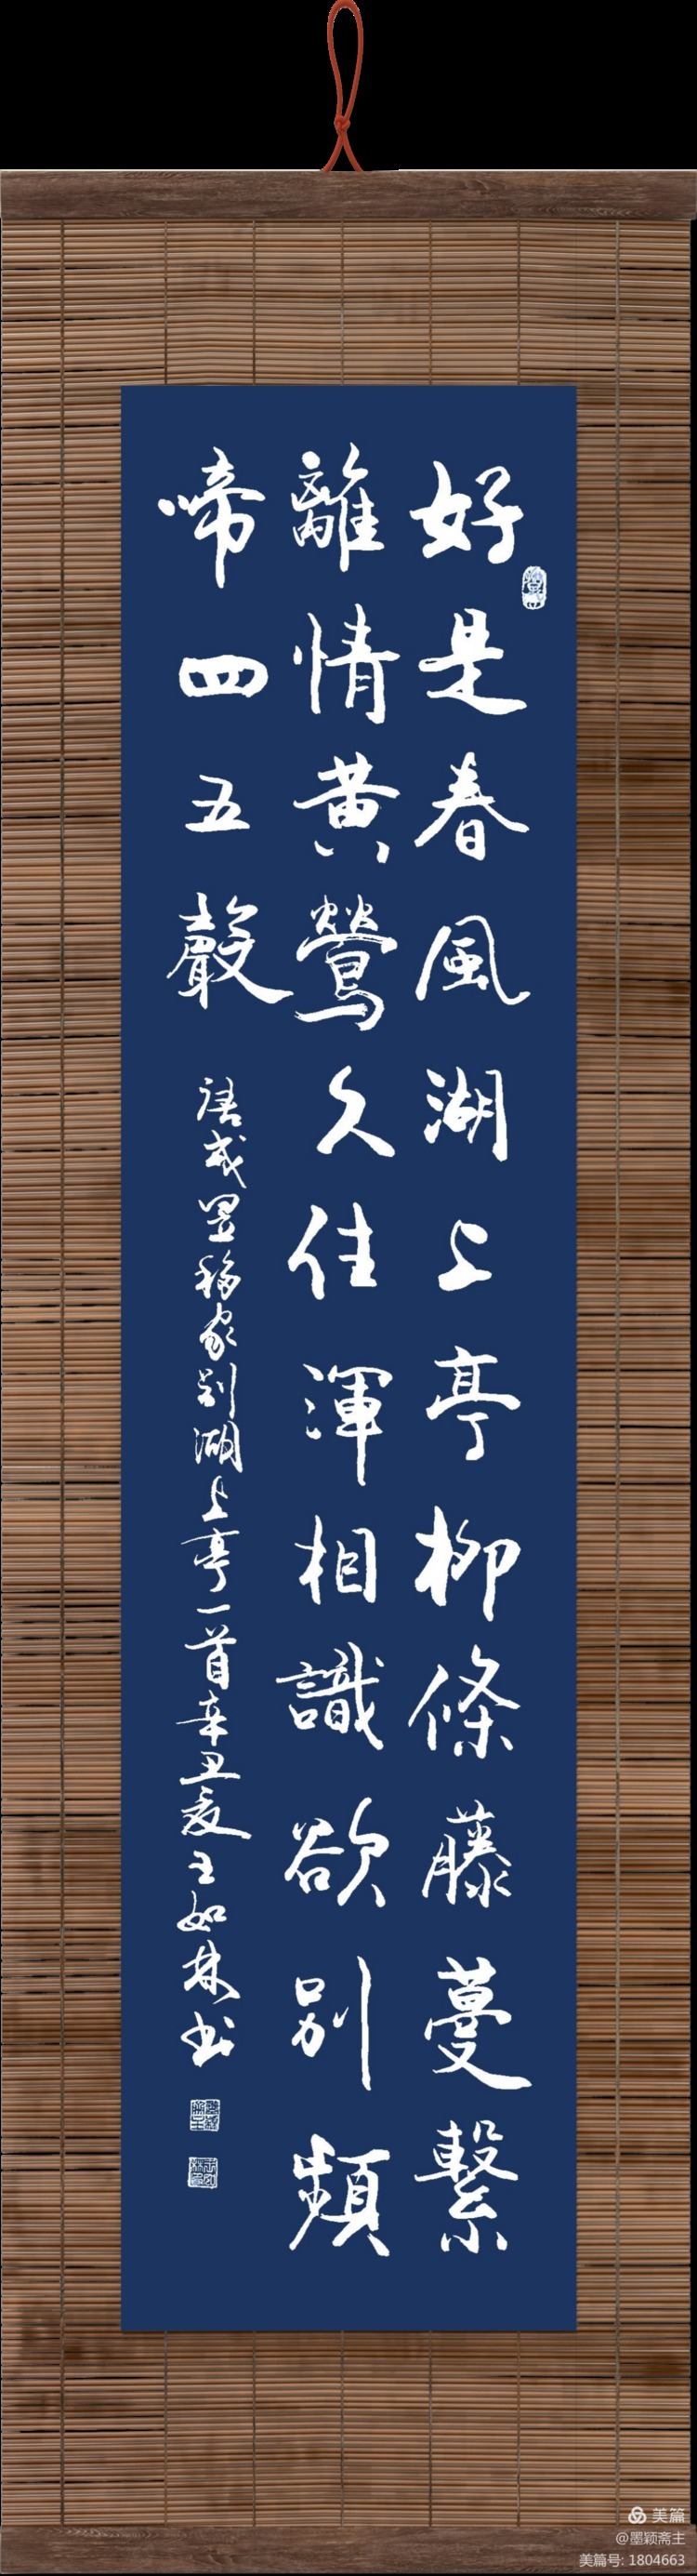 好是春風湖上亭柳條藤蔓繫
離情黃鶯久住渾相識欲別頻
啼四五聲
唐戎昱移家别湖上亭一首辛丑夏王如林书
美篇
@墨颖斋主
美篇号: 1804663